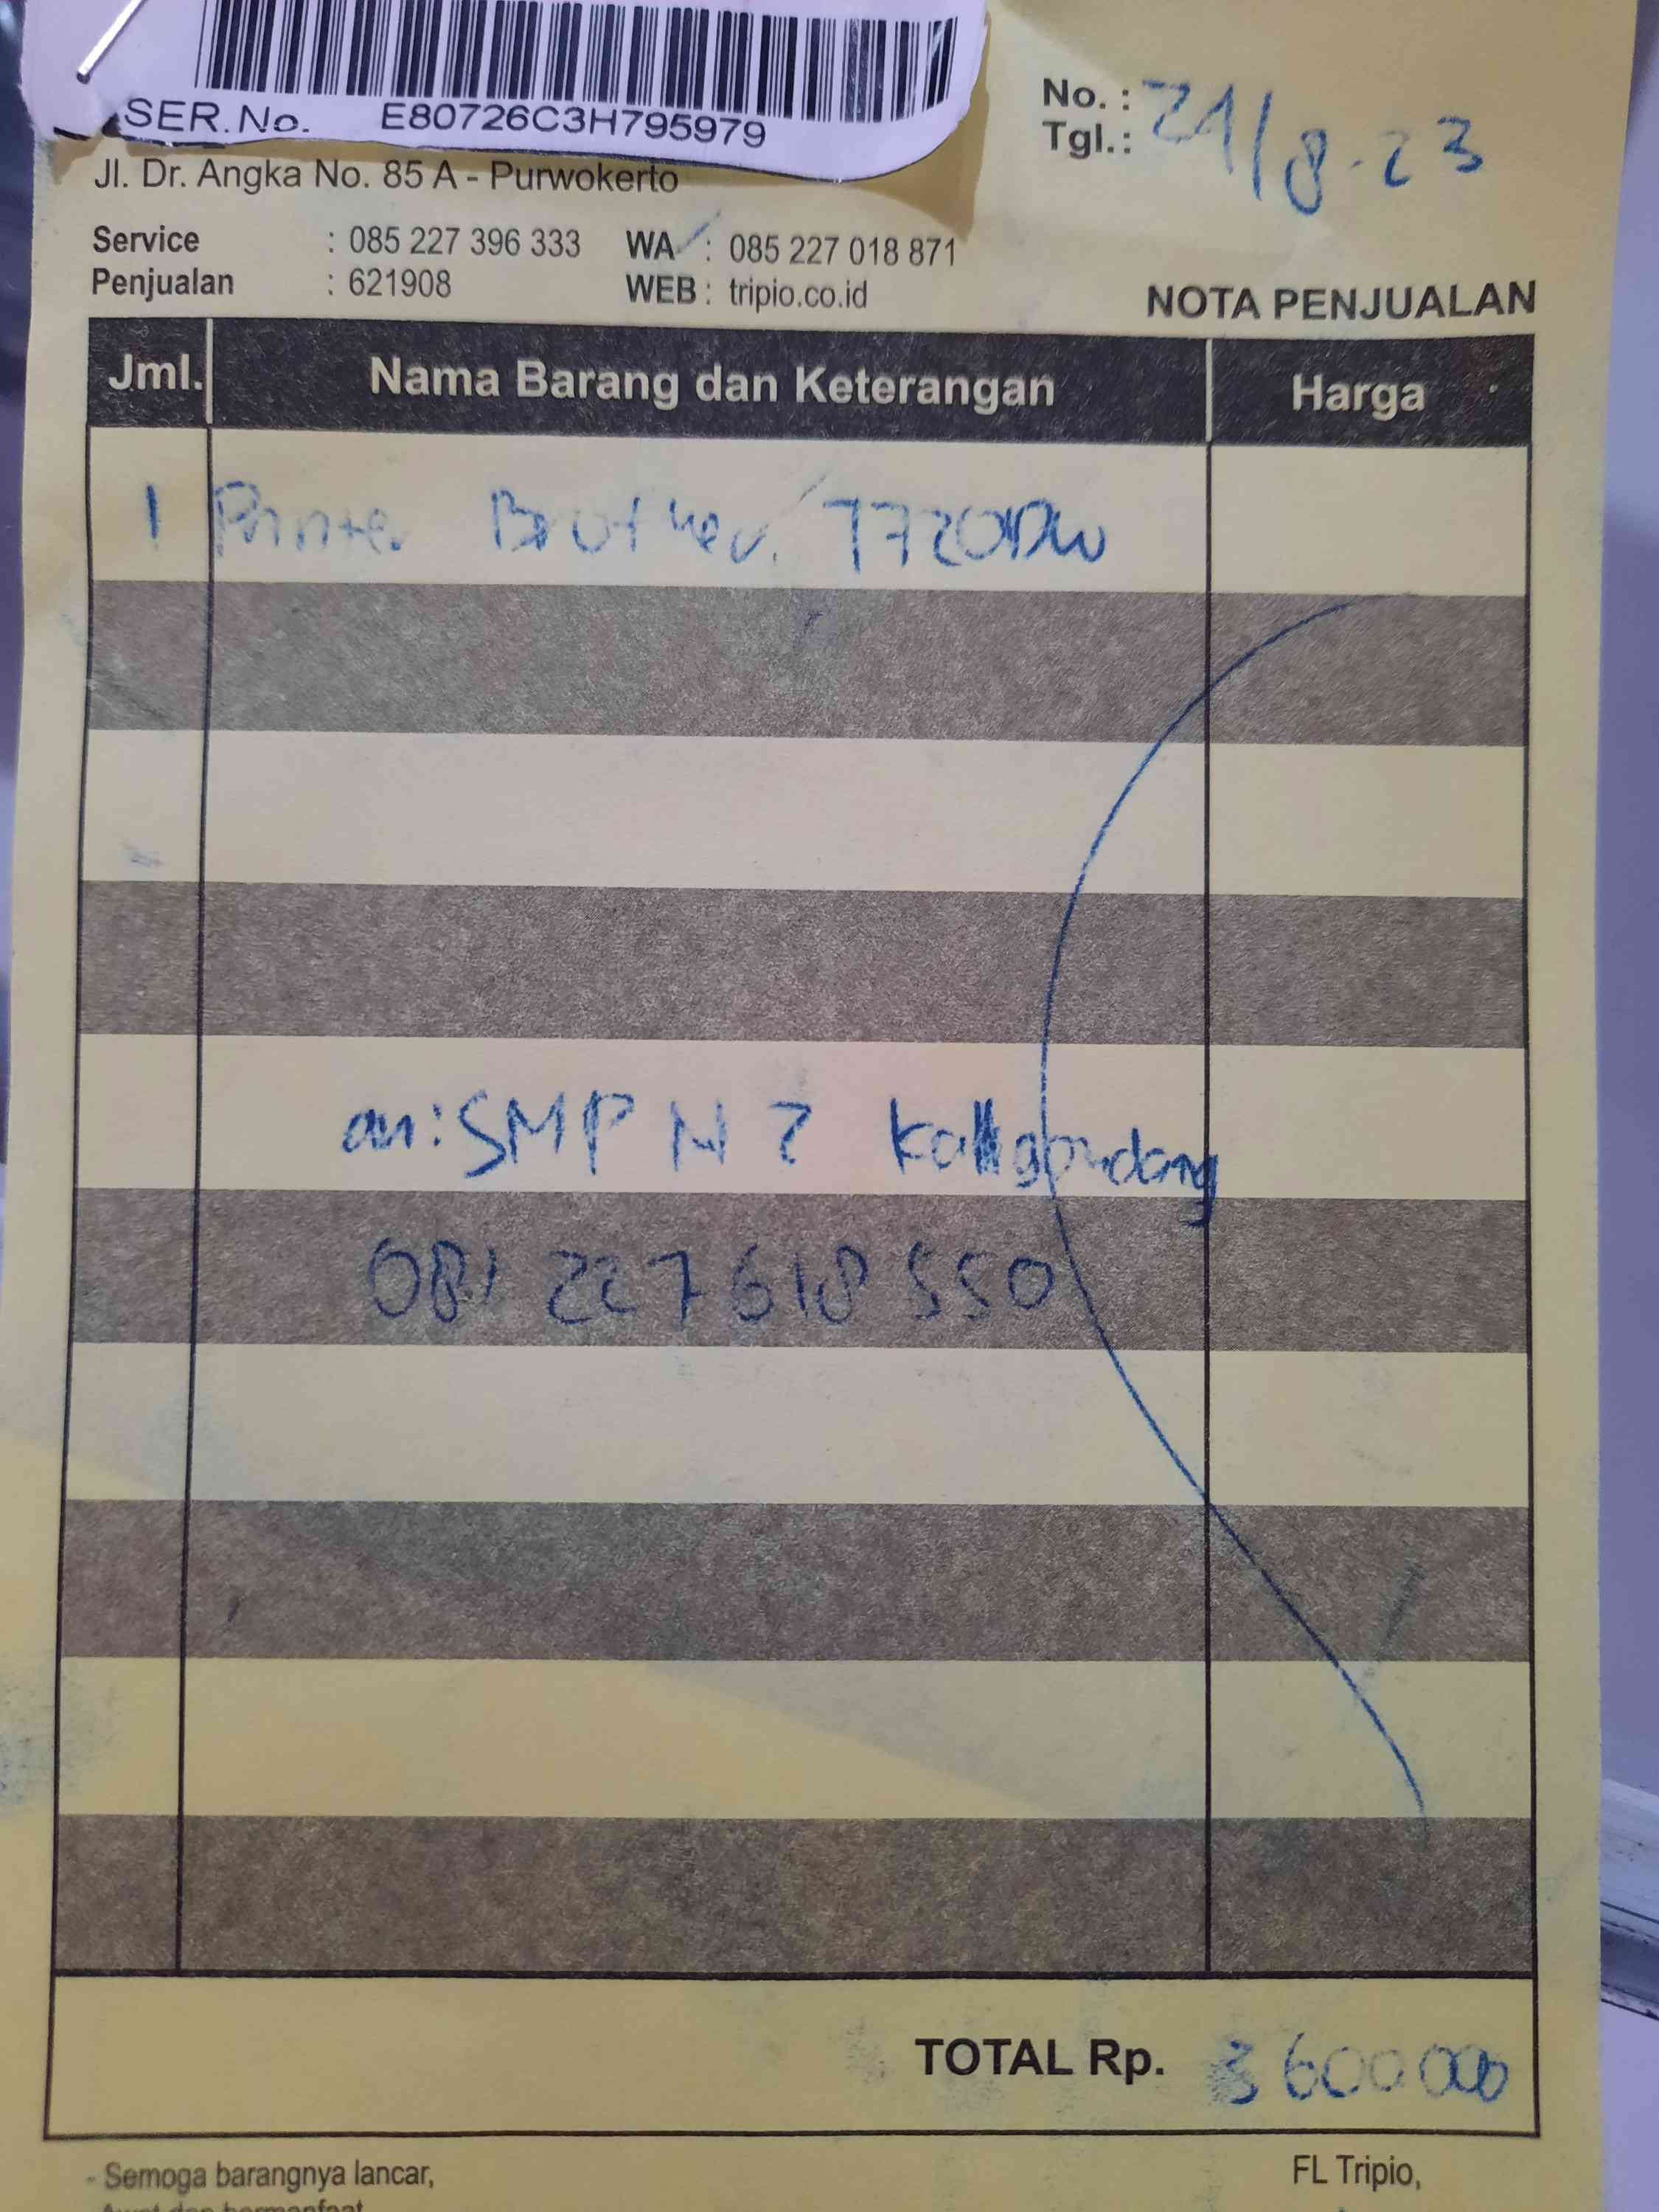 SER.No. E80726C3H795979
No. :
Tgl.: 21/8-23
Jl. Dr. Angka No. 85 A - Purwokerto
Service : 085 227 396 333 WA : 085 227 018 871
Penjualan : 621908 WEB : tripio.co.id
NOTA PENJUALAN
Jml. Nama Barang dan Keterangan Harga
1 Printer Brother T720DW
an: SMP N 2 Kaligondang
081 227 618 550
TOTAL Rp. 3600000
- Semoga barangnya lancar,
FL Tripio,
Awet dan bermanfaat